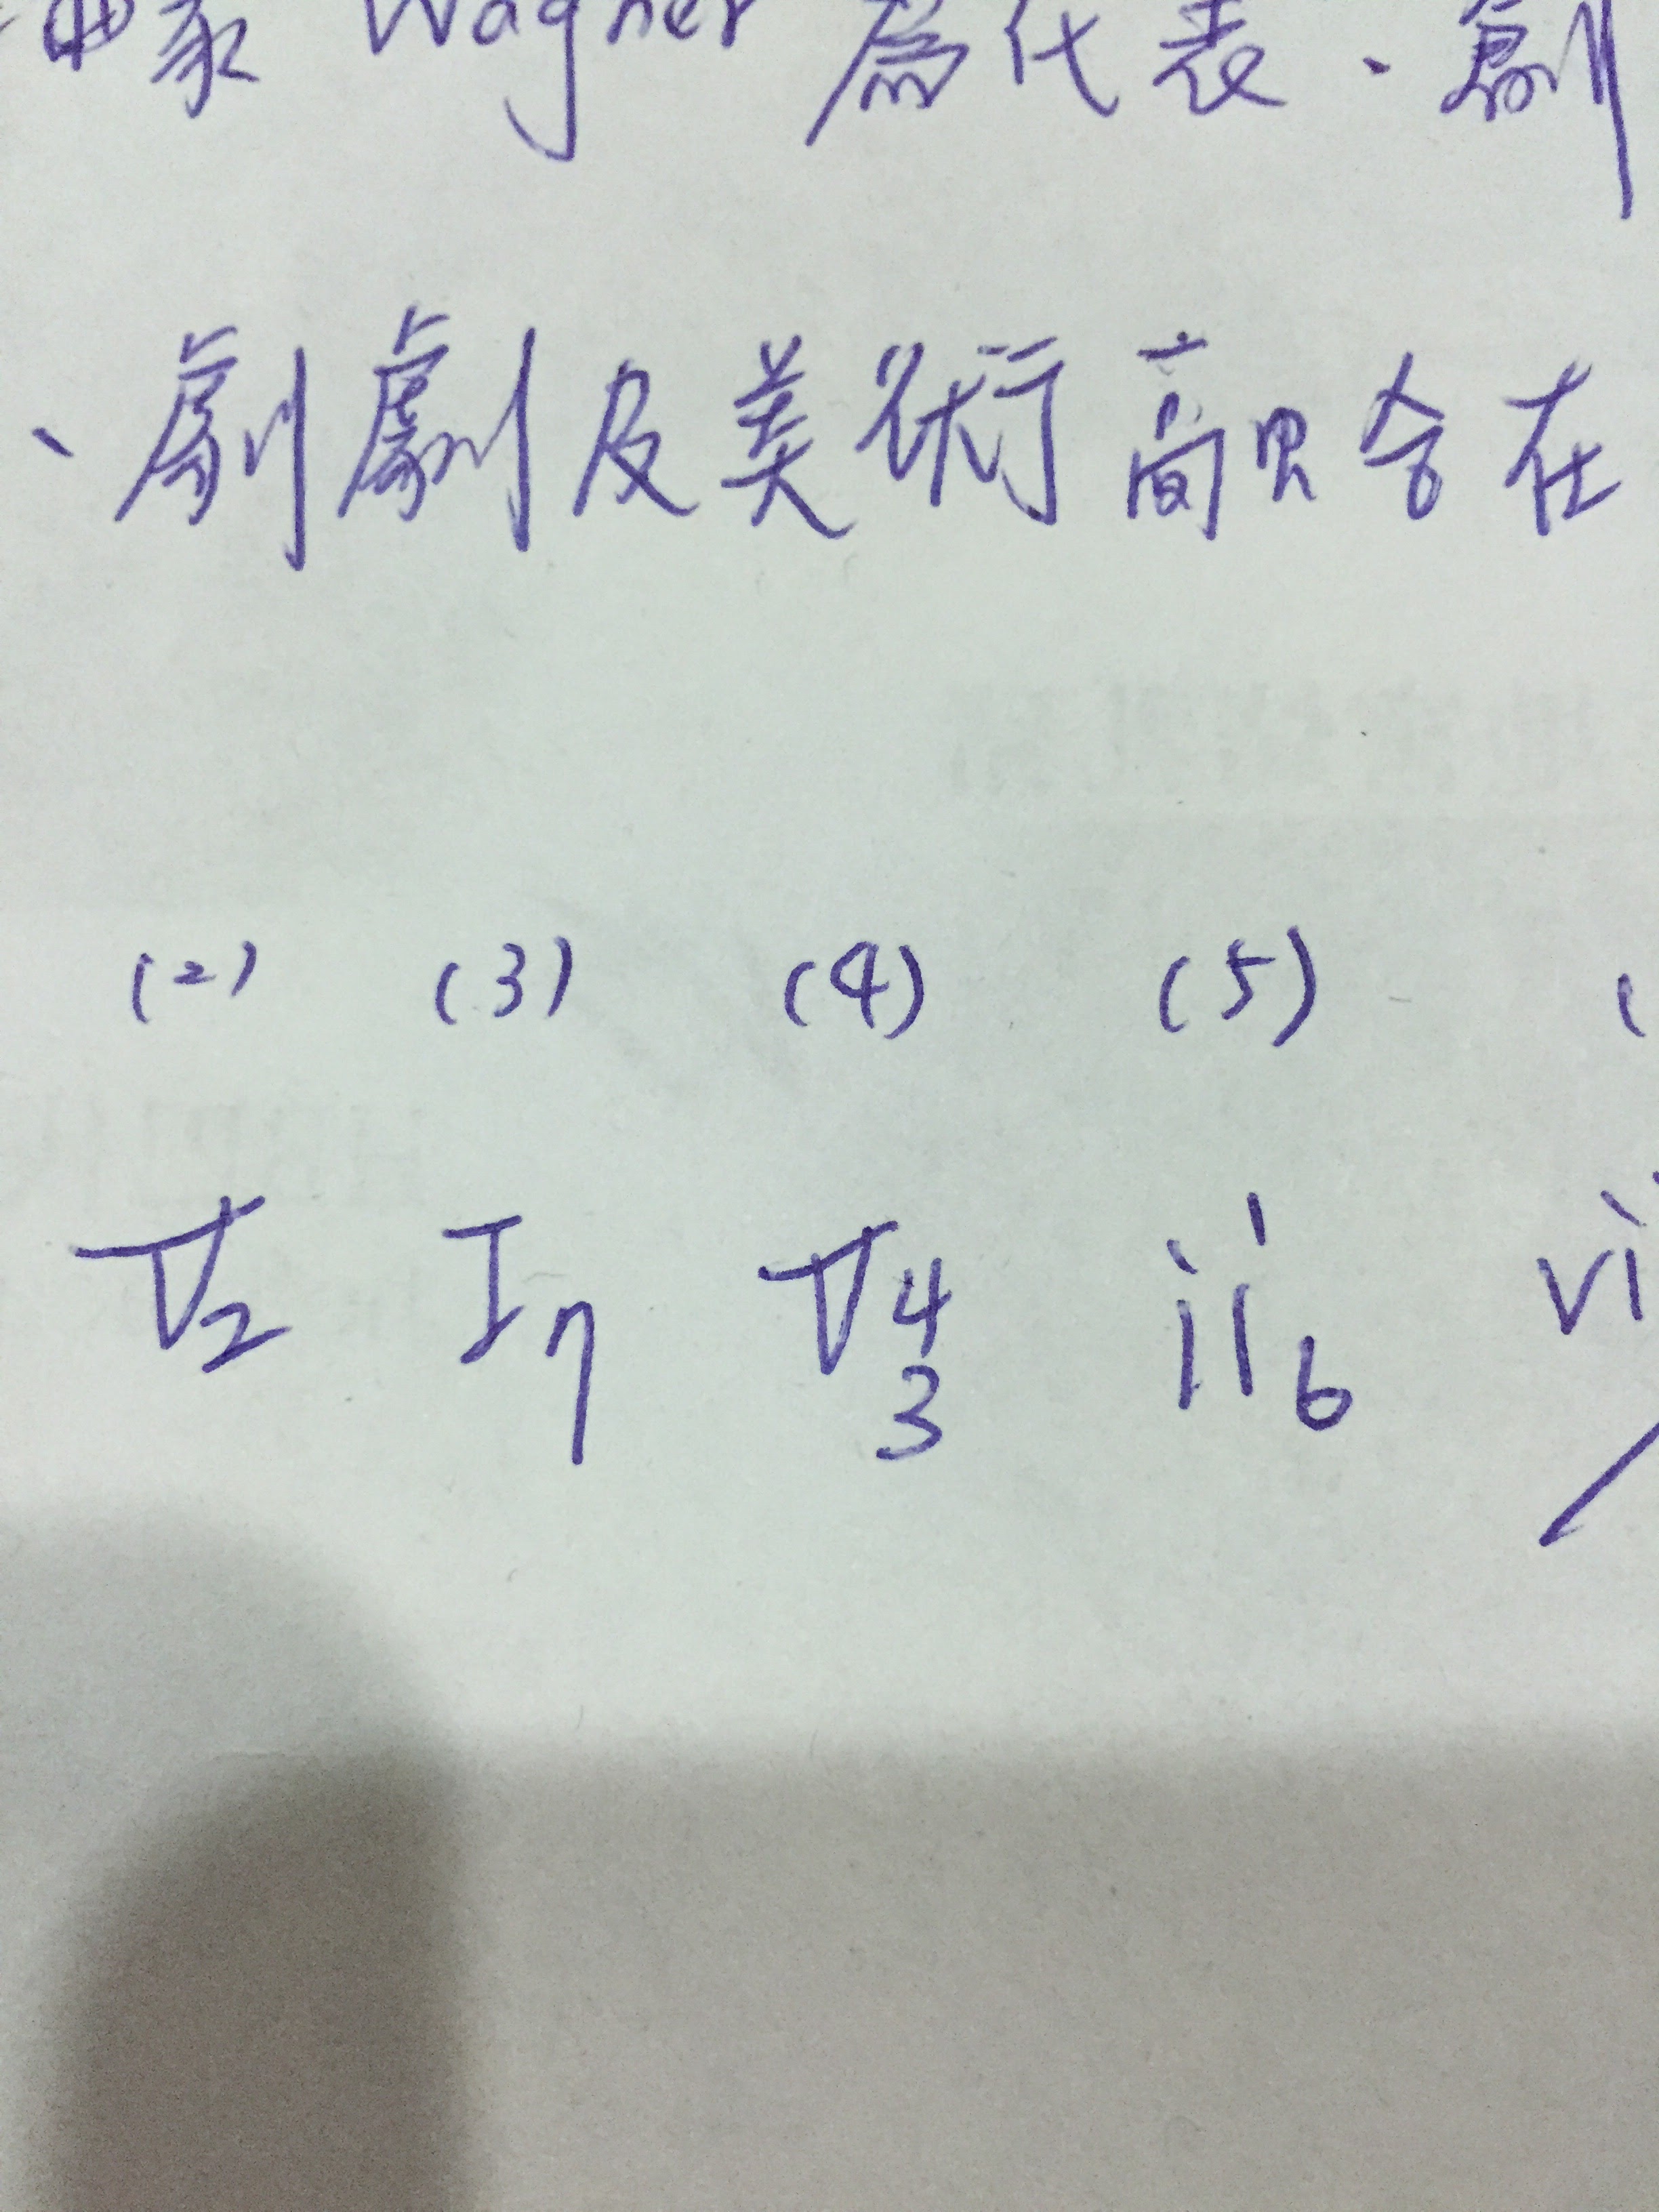 家 Wagner 為代表、劇
、劇劇及美術融合在
(2) (3) (4) (5) (
V2 I7 V43 ii6 vi